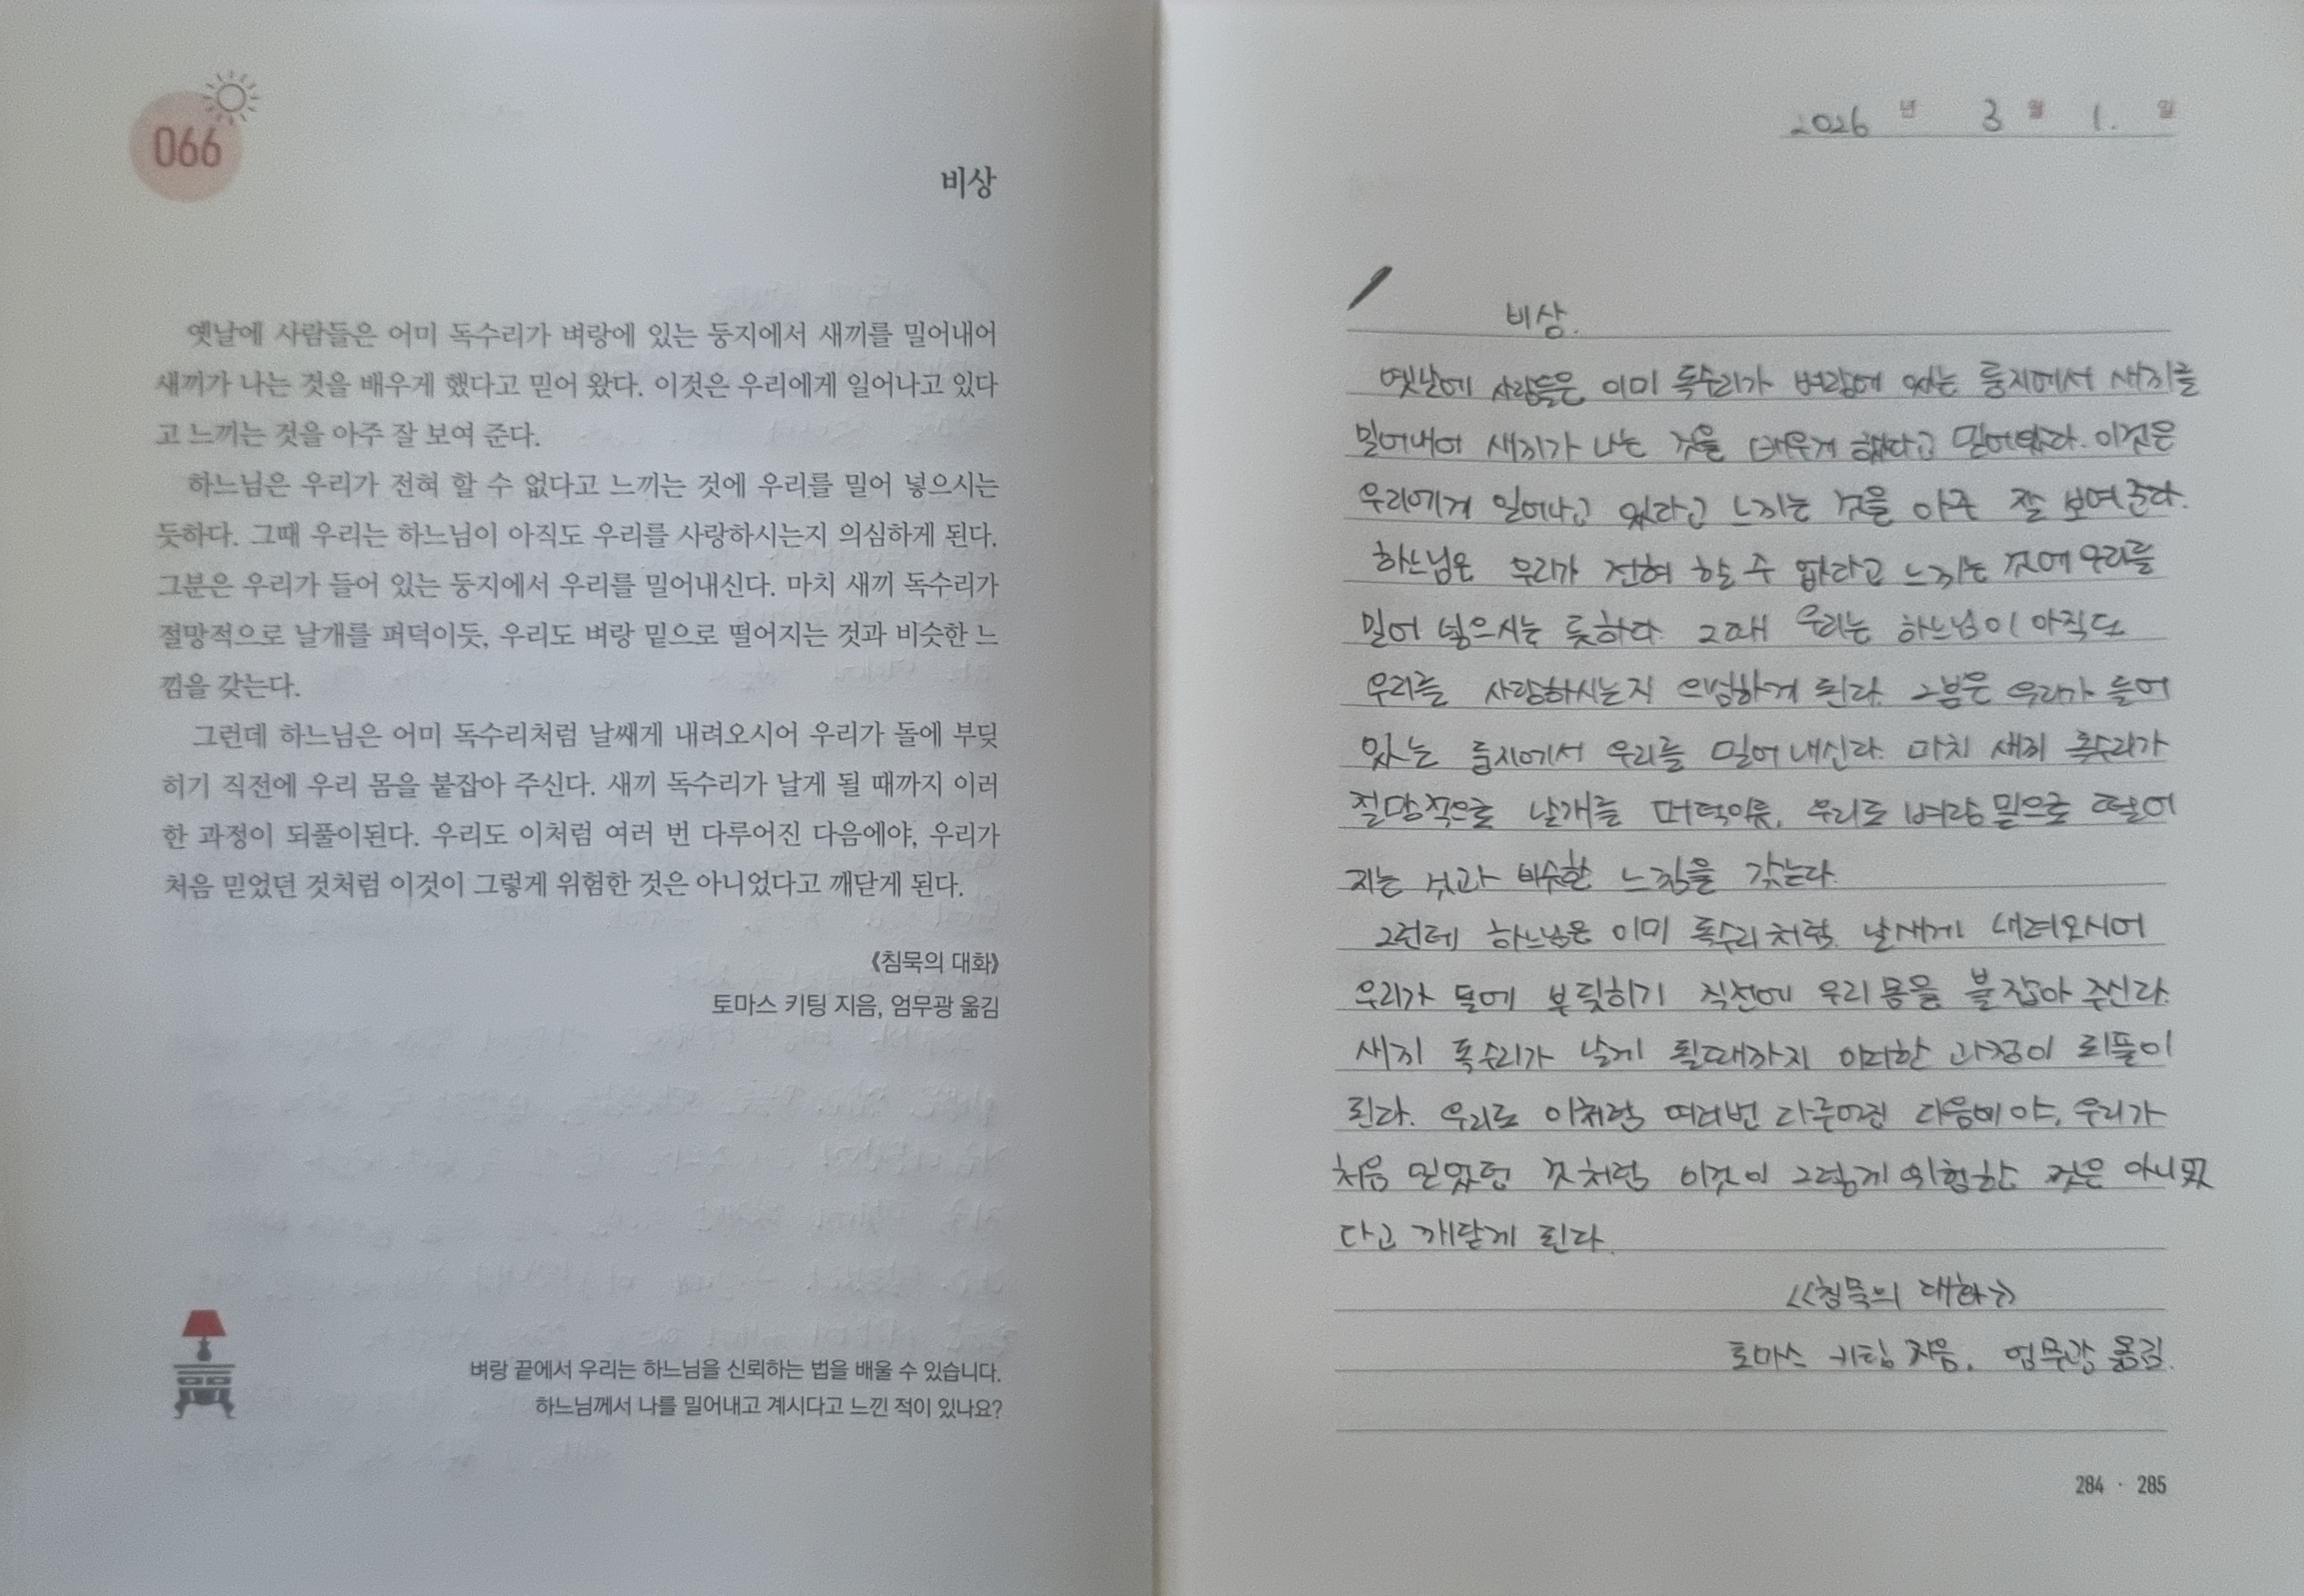 066
비상
옛날에 사람들은 어미 독수리가 벼랑에 있는 둥지에서 새끼를 밀어내어
새끼가 나는 것을 배우게 했다고 믿어 왔다. 이것은 우리에게 일어나고 있다
고 느끼는 것을 아주 잘 보여 준다.
하느님은 우리가 전혀 할 수 없다고 느끼는 것에 우리를 밀어 넣으시는
듯하다. 그때 우리는 하느님이 아직도 우리를 사랑하시는지 의심하게 된다.
그분은 우리가 들어 있는 둥지에서 우리를 밀어내신다. 마치 새끼 독수리가
절망적으로 날개를 퍼덕이듯, 우리도 벼랑 밑으로 떨어지는 것과 비슷한 느
낌을 갖는다.
그런데 하느님은 어미 독수리처럼 날쌔게 내려오시어 우리가 돌에 부딪
히기 직전에 우리 몸을 붙잡아 주신다. 새끼 독수리가 날게 될 때까지 이러
한 과정이 되풀이된다. 우리도 이처럼 여러 번 다루어진 다음에야, 우리가
처음 믿었던 것처럼 이것이 그렇게 위험한 것은 아니었다고 깨닫게 된다.
《침묵의 대화》
토마스 키팅 지음, 엄무광 옮김
벼랑 끝에서 우리는 하느님을 신뢰하는 법을 배울 수 있습니다.
하느님께서 나를 밀어내고 계시다고 느낀 적이 있나요?
2026 년 3 월 1. 일
비상.
옛날에 사람들은 어미 독수리가 벼랑에 있는 둥지에서 새끼를
밀어내어 새끼가 나는 것을 배우게 했다고 믿어왔다. 이것은
우리에게 일어나고 있다고 느끼는 것을 아주 잘 보여준다.
하느님은 우리가 전혀 할 수 없다고 느끼는 것에 우리를
밀어 넣으시는 듯하다. 그때 우리는 하느님이 아직도
우리를 사랑하시는지 의심하게 된다. 그분은 우리가 들어
있는 둥지에서 우리를 밀어내신다. 마치 새끼 독수리가
절망적으로 날개를 퍼덕이듯, 우리도 벼랑 밑으로 떨어
지는 것과 비슷한 느낌을 갖는다.
그런데 하느님은 어미 독수리처럼 날쌔게 내려오시어
우리가 돌에 부딪히기 직전에 우리 몸을 붙잡아 주신다.
새끼 독수리가 날게 될때까지 이러한 과정이 되풀이
된다. 우리도 이처럼 여러번 다루어진 다음에야, 우리가
처음 믿었던 것처럼 이것이 그렇게 위험한 것은 아니었
다고 깨닫게 된다.
<<침묵의 대화>>
토마스 키팅 지음, 엄무광 옮김.
284 · 285